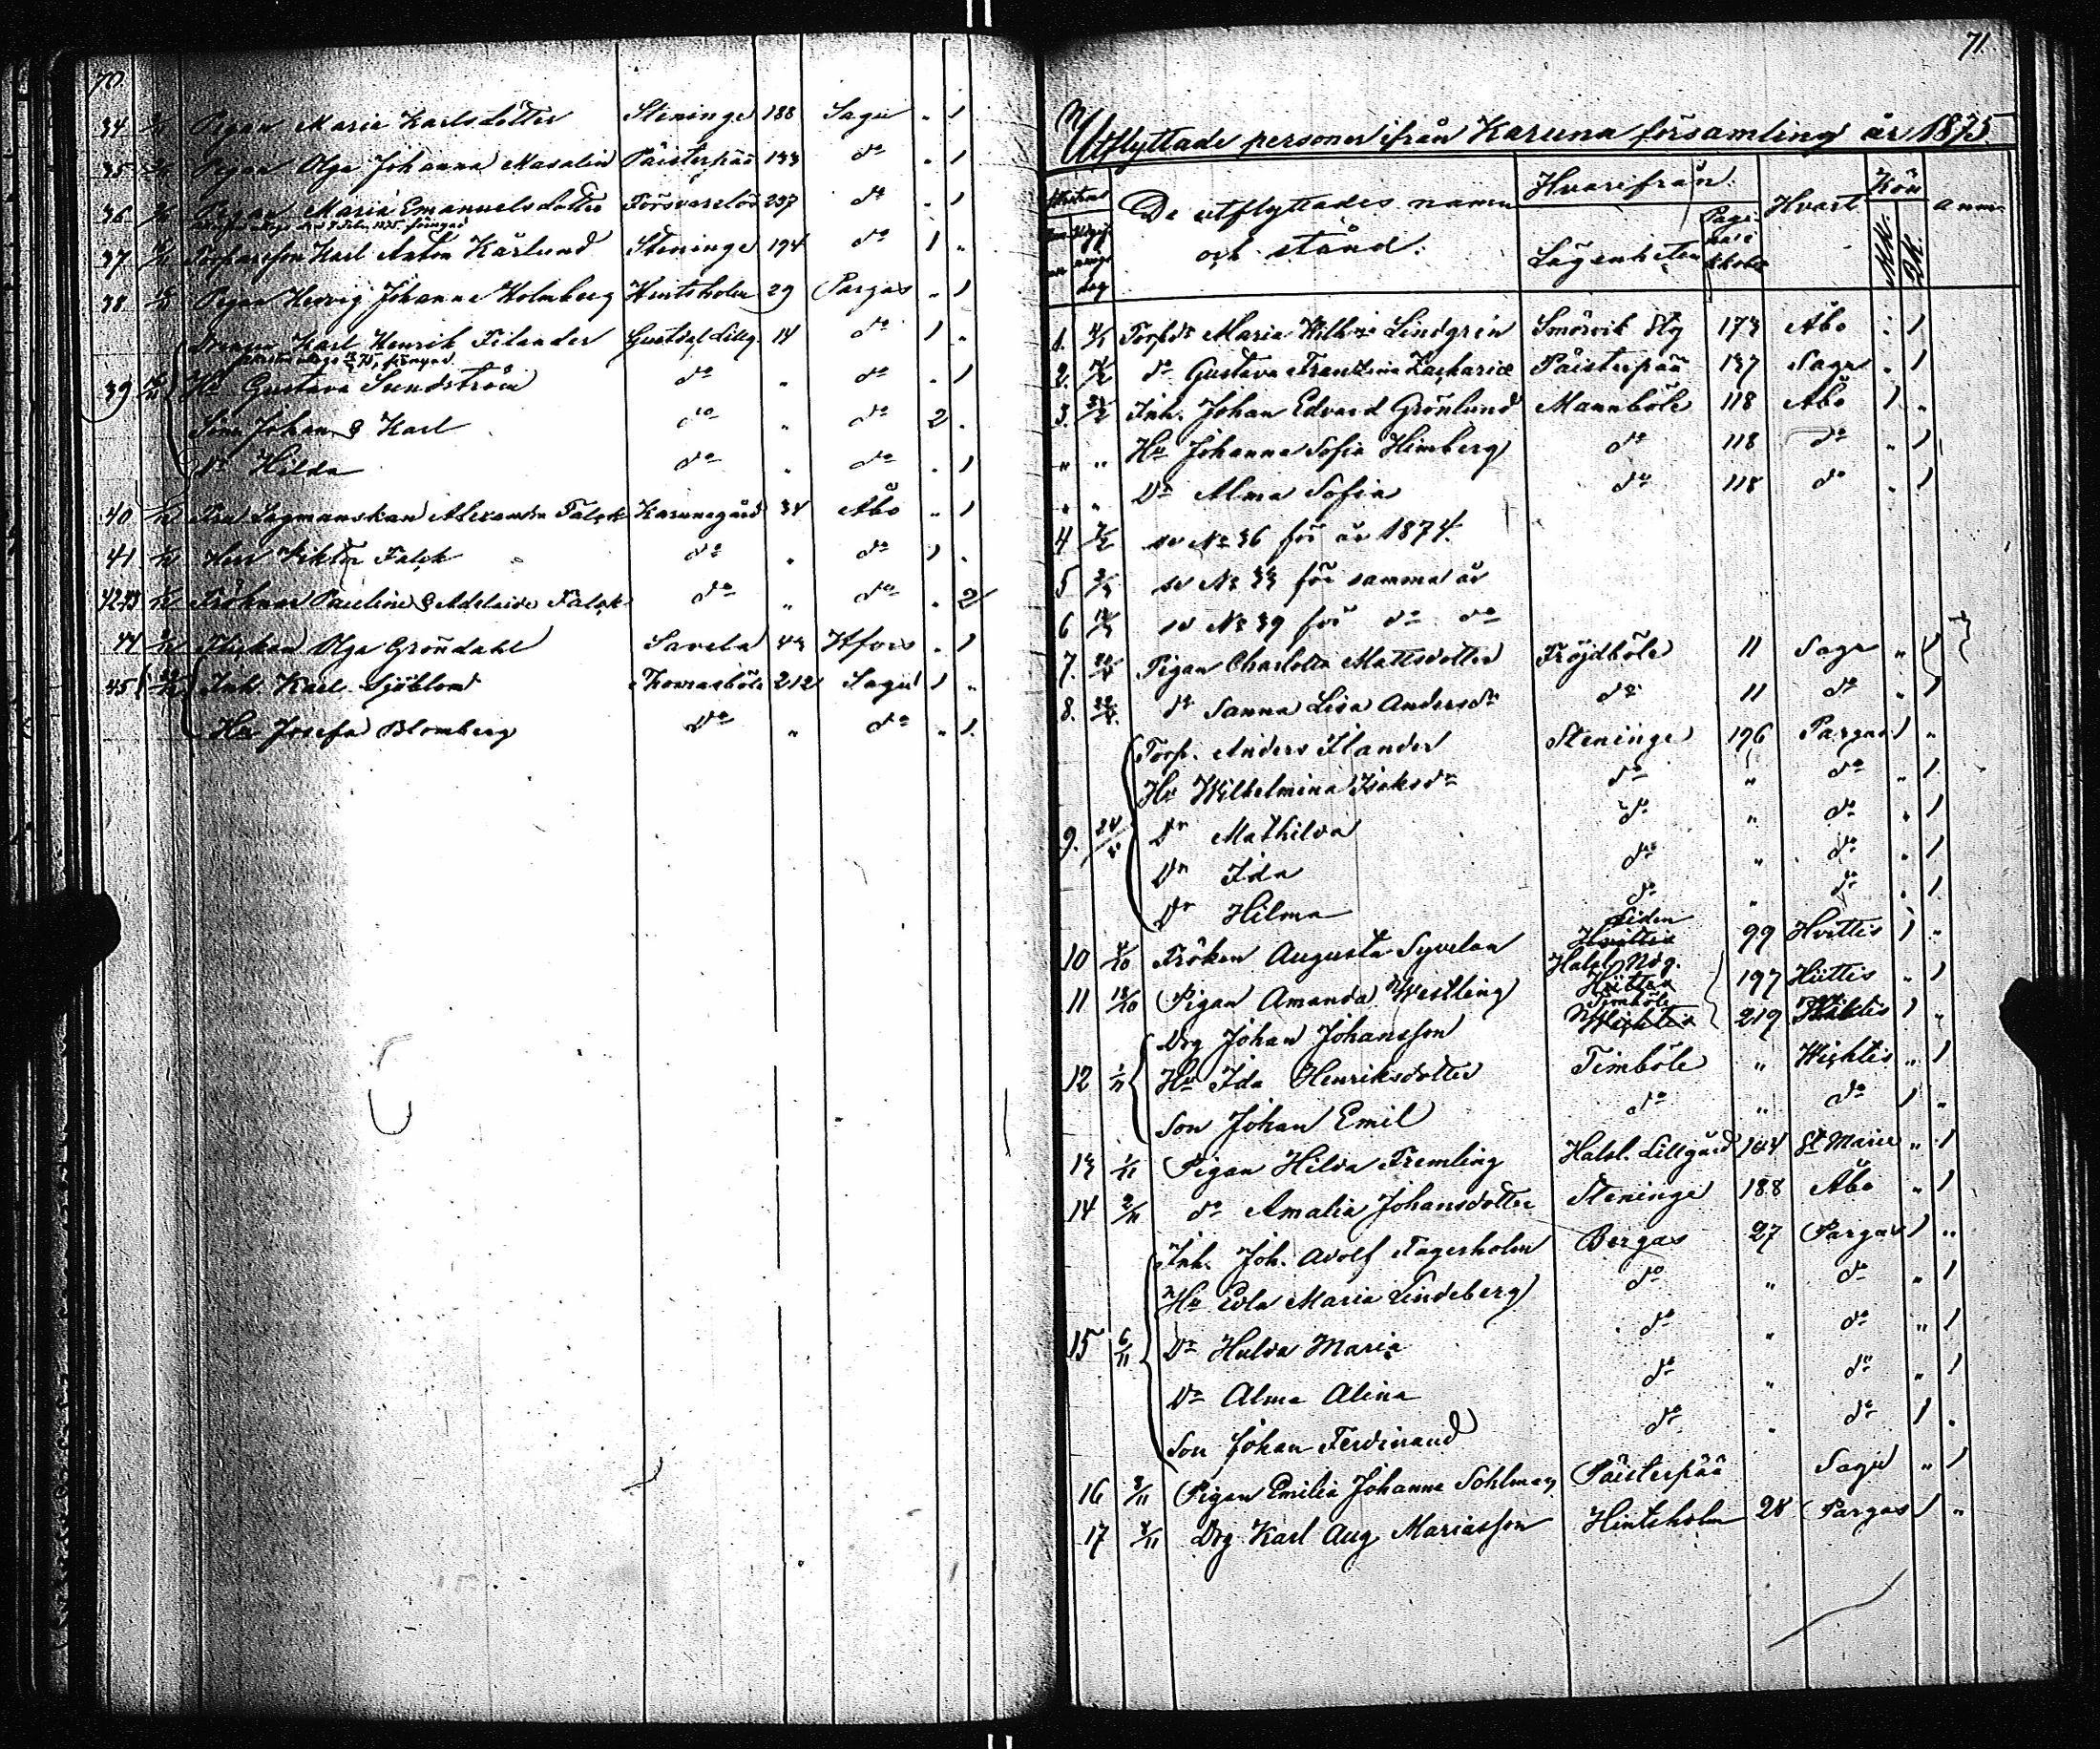 70
34 Pigan Maria Karlsdotter Steninge 188 Sagu " 1
35 Pigan Olga Johanna Masalin Päisterpää 133 do " 1
36 Pigan Maria Emanuelsdotter 237 do " 1
37 Karl Anton Kårlund Steninge 194 do 1 "
38 Pigan Hedvig Johanna Holmberg 29 Pargas " 1
Drengen Karl Henrik Filander Lillg. 14 do 1 "
39 Hu Gustava Sundström do " do " 1
Söner Johan & Karl do " do 2 "
Dr Hilda do " do " 1
40 Fru Lagmanskan Alexandra Falck Karunagård 34 Åbo " 1
41 Herr Viktor Falck do " do 1 "
42.43 Fröknar Pauline & Adelaide Falck do " do " 2
44 Flickan Olga Gröndahl Savela 43 Hfors " 1
45 Inh. Karl Sjöblom Thomasböle 212 Sagu 1 "
Hu Josefa Blomberg do " do " 1
71
Utflyttade personer ifrån Karuna församling år 1875.
De utflyttades namn Hvarifrån Hvart Kön anm
och stånd. Lägenheten MK. QK.
dag
1. Maria Lindgren Smörvik 173 Åbo " 1
2. do Gustava Päisterpää 137 Sagu " 1
3. Inh. Johan Edvard Grönlund Mannböle 118 Åbo 1 "
" " Hu Johanna Sofia Himberg do 118 do " 1
" " Dr Alma Sofia do 118 do " 1
4 se No 36 för år 1874.
5 se No 33 för samma år
6 se No 39 för do do
7. Pigan Charlotta Mattsdotter Fröjdböle 11 Sagu " 1
8. do Sanna Lisa Andersdr do 11 do " 1
Torp. Anders Ilander Steninge 196 Pargas 1 "
Hu Wilhelmina Isaksdr do " do " 1
9. 24 Dr Mathilda do " do " 1
Dr Ida do " do " 1
Dr Hilma do " do " 1
Liden
10 Fröken Augusta Syvelan Hvittis 99 Hvittis 1 "
Halsl. Ndg.
11 18/10 Pigan Amanda Westling 197 Hiittis " 1
Timböle
Drg Johan Johansson Wichtis 219 1 "
12 1/11 Hu Ida Henriksdotter Timböle " Wichtis " 1
Son Johan Emil do " do 1 "
13 1/11 Pigan Hilda Fremling Halsl. Lillgård 184 St Marie " 1
14 2/11 do Amalia Johansdotter Steninge 188 Åbo " 1
Inh. Joh. Adolf Fagerholm Bergas 27 Pargas 1 "
Hu Edla Maria Lindeberg do " do " 1
15 6/11 Dr Hulda Maria do " do " 1
Dr Alma Alina do " do " 1
Son Johan Ferdinand do " do 1 "
16 8/11 Pigan Emilia Johanna Sohlman Päisterpää Sagu " 1
17 8/11 Drg Karl Aug Mariasson Hintsholm 28 Pargas 1 "